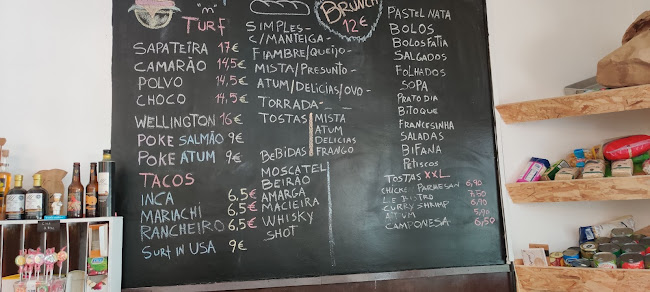 "m"
TURF
SAPATEIRA 17€
CAMARÃO 14,5€
POLVO 14,5€
CHOCO 14,5€
WELLINGTON 16€
POKE SALMÃO 9€
POKE ATUM 9€
TACOS
INCA 6,5€
MARIACHI 6,5€
RANCHEIRO 6,5€
SURF IN USA 9€
BRUNCH
12€
SIMPLES-
C/MANTEIGA-
FIAMBRE/QUEIJO-
MISTA/PRESUNTO-
ATUM/DELICIAS/OVO-
TORRADA-
TOSTAS
MISTA
ATUM
DELICIAS
FRANGO
BEBIDAS
MOSCATEL
BEIRÃO
AMARGA
MACIEIRA
WHISKY
SHOT
PASTEL NATA
BOLOS
BOLOS FATIA
SALGADOS
FOLHADOS
SOPA
PRATO DIA
BITOQUE
FRANCESINHA
SALADAS
BIFANA
PETISCOS
TOSTAS XXL
CHICK PARMESAN 6,90
LE BISTRO 7,50
CURRY SHRIMP 6,90
ATUM 5,90
CAMPONESA 6,50